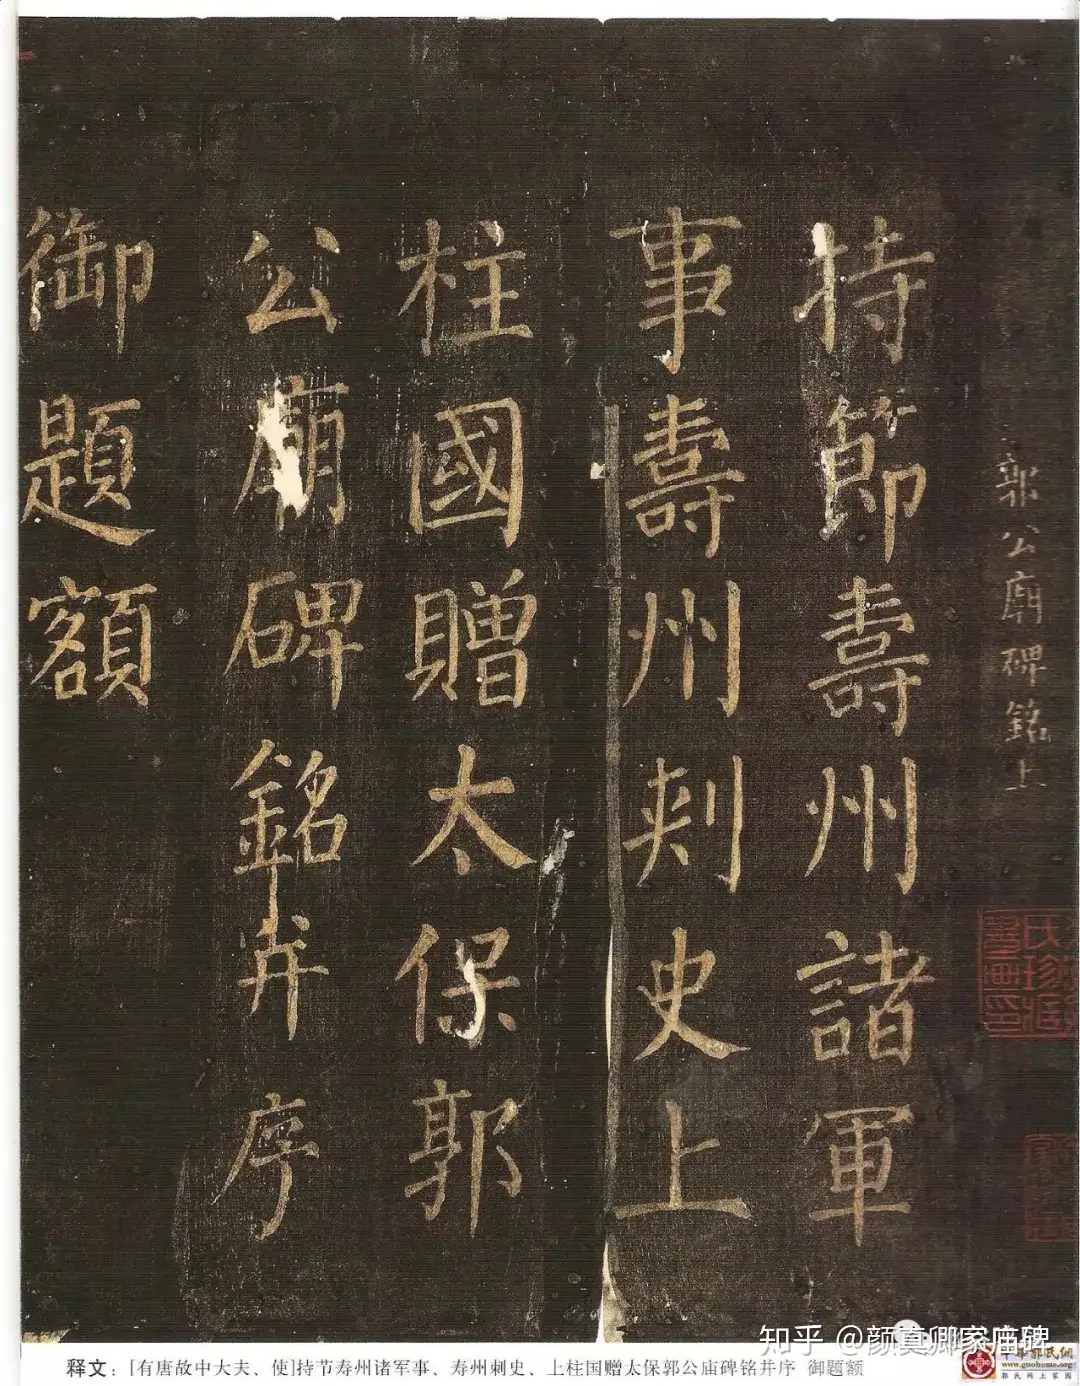 郭公廟碑銘上
持節壽州諸軍
事壽州刾史上
柱國贈太保郭
公廟碑銘并序
御題額
知乎 @颜真卿家庙碑
释文：[有唐故中大夫、使]持节寿州诸军事、寿州刺史、上柱国赠太保郭公庙碑铭并序 御题额
中华郭氏网
www.guohome.org
郭氏网上家园